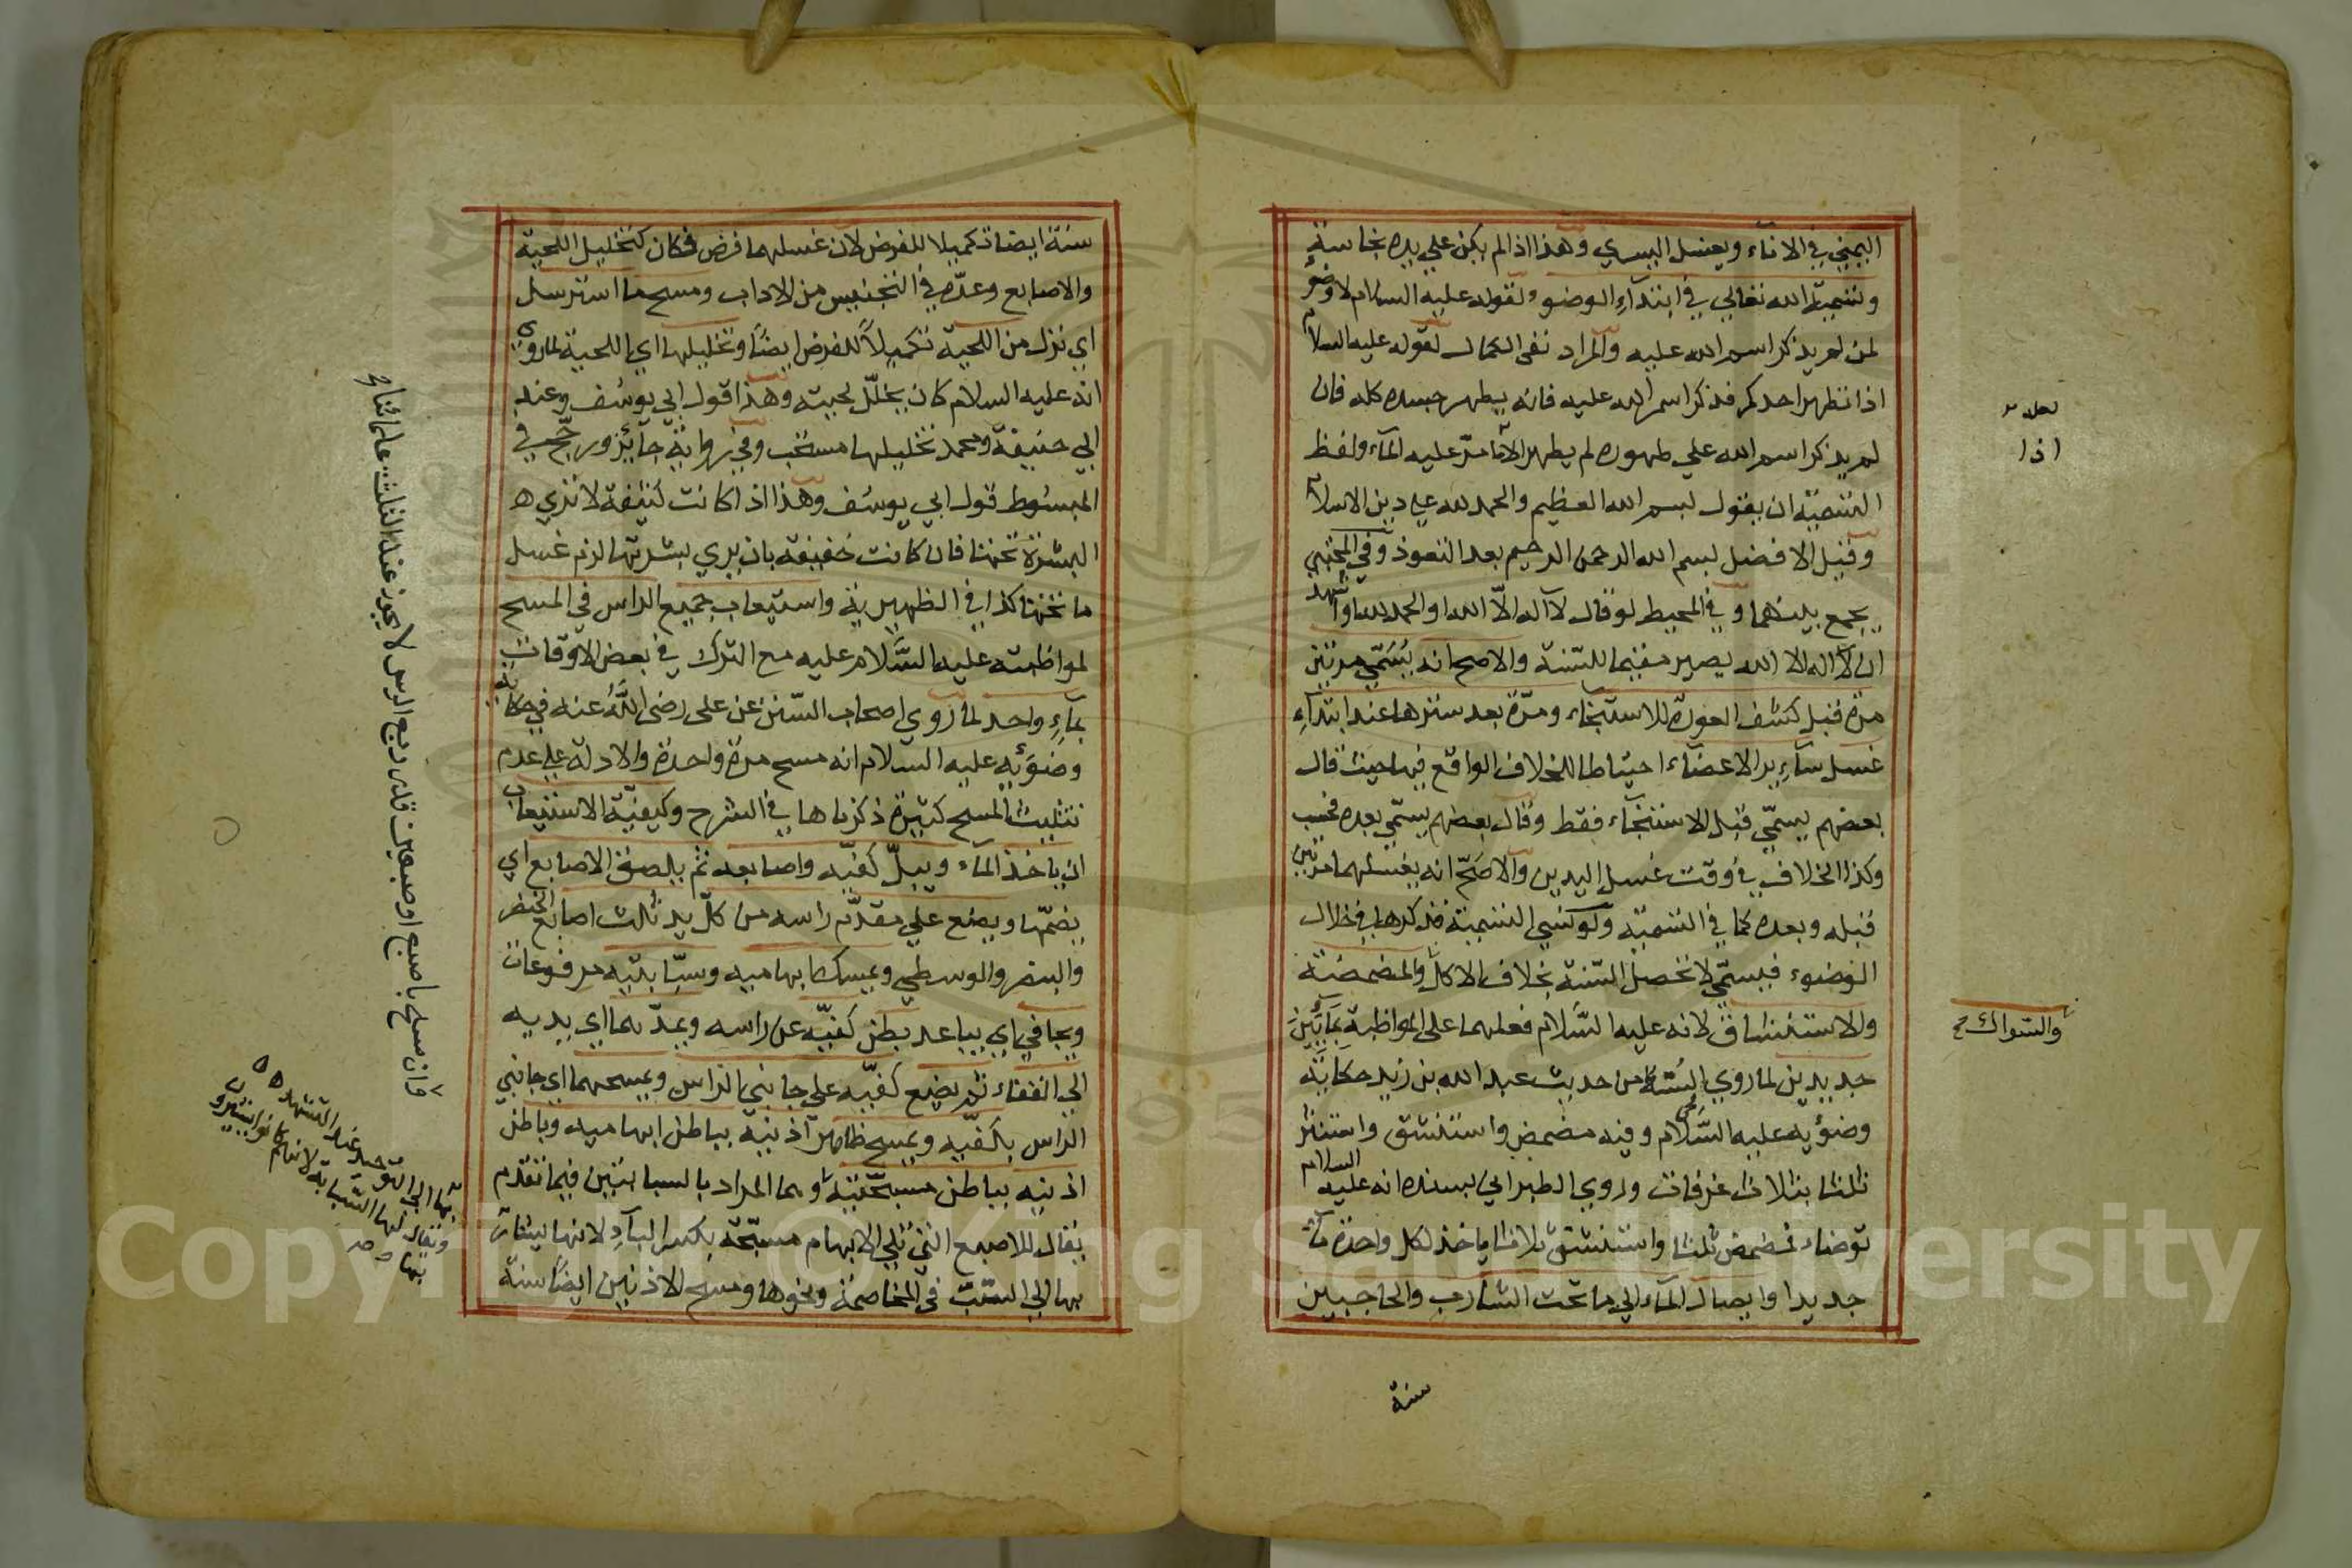 اليمني في الاناء ويغسل اليسري وهذا اذا لم يكن علي يده نجاسة
وتسمية الله تعالي في ابتداء الوضوء لقوله عليه السلام لا وضوء
لمن لم يذكر اسم الله عليه والمراد نفي الكمال لقوله عليه السلام
اذا تطهر احدكم فذكر اسم الله عليه فانه يطهر جسده كله فان
لم يذكر اسم الله علي طهوره لم يطهر الا ما مرّ عليه الماء ولفظ
التسمية ان يقول بسم الله العظيم والحمد لله علي دين الاسلام
وقيل الافضل بسم الله الرحمن الرحيم بعد التعوذ وفي المجتبي
يجمع بينهما وفي المحيط لو قال لا اله الاّ الله او الحمد لله او اشهد
ان لا اله الا الله يصير مقيما للسّنة والاصح انه يُسَمّي مرتين
مرة قبل كشف العورة للاستنجاء ومرّة بعد سترها عند ابتداء
غسل سآئر الاعضاء احتياطا للخلاف الواقع فيها حيث قال
بعضهم يسمّي قبل الاستنجاء فقط وقال بعضهم يسمّي بعده فحسب
وكذا الخلاف في وقت غسل اليدين والاصحّ انه يغسلهما مرتين
قبله وبعده كما في التسمية ولو نسي التسمية فذكرها في خلال
الوضوء فيسمّي لا تحصل السّنة بخلاف الاكل والمضمضة
والاستنشاق لانه عليه السّلام فعلهما علي المواظبة بمآئين
جديدين لما روي الستة من حديث عبد الله بن زيد حكاية
وضوئه عليه السّلام وفيه مضمض واستنشق واستنثر
ثلثا بثلاث غرفات وروي الطبراني بسنده انه عليه السلام
توضاء فمضمض ثلثا واستنشق ثلاثا ياخذ لكل واحدة مآء
جديدا وايصال المآء الي ما تحت الشارب والحاجبين
لعله
اذا
والسّواك
سنة
سنة ايضا تكميلا للفرض لان غسلهما فرض فكان كتخليل اللحية
والاصابع وعدّه في التجنيس من الاداب ومسح ما استرسل
اي نزل من اللحية تكميلاً للفرض ايضاً وتخليلها اي اللحية لما روي
انه عليه السلام كان يخلّل لحيته وهذا قول ابي يوسُف وعند
ابي حنيفة ومحمد تخليلها مستحب وفي رواية جآئز ورجّح في
المبسُوط قول ابي يوسُف وهذا اذا كانت كثيفة لا تري
البشرة تحتها فان كانت خفيفة بان يري بشرتها لزم غسل
ما تحتها كذا في الظهيرية واستيعاب جميع الراس في المسح
لمواظبته عليه السَّلام عليه مع الترك في بعض الاوقات
بمآءٍ واحد لما روي اصحاب السّنن عن علي رضي اللَّهُ عنه في حكاية
وضوئه عليه السلام انه مسح مرة واحدة والادلة علي عدم
تثليث المسح كثيرة ذكرناها في الشرح وكيفيّة الاستيعاب
ان ياخذ المآء ويبلّ كفيّه واصابعه ثم يلصق الاصابع اي
يضمّها ويضع علي مقدّم راسه من كلّ يد ثلث اصابع الخنصر
والبنصر والوسطي ويمسك ابهاميه وسبّابتيه مرفوعات
ويجافي اي يباعد بطن كفيّه عن راسه ويمدّهما اي يديه
الي القفاء ثم يضع كفيّه علي جانبي الراس ويمسحهما اي جانبي
الراس بكفيّه ويمسح ظاهر اذنيه بباطن ابهاميه وباطن
اذنيه بباطن مسبّحتيه وهما المراد بالسبابتين فيما تقدم
يقال للاصبع التي تلي الابهام مسبّحة بكسر البآءِ لانها يشار
بها الي السّبّ في المخاصمة ونحوها ومسح الاذنين ايضاً سنة
وان مسح باصبع او صبعين قدر ربع الراس لا يجوز عند الثلث علمائنا
بها الي التوحيد عند التشهد
ويقال لها السّبابة لانهم كانوا يشيرون
بها